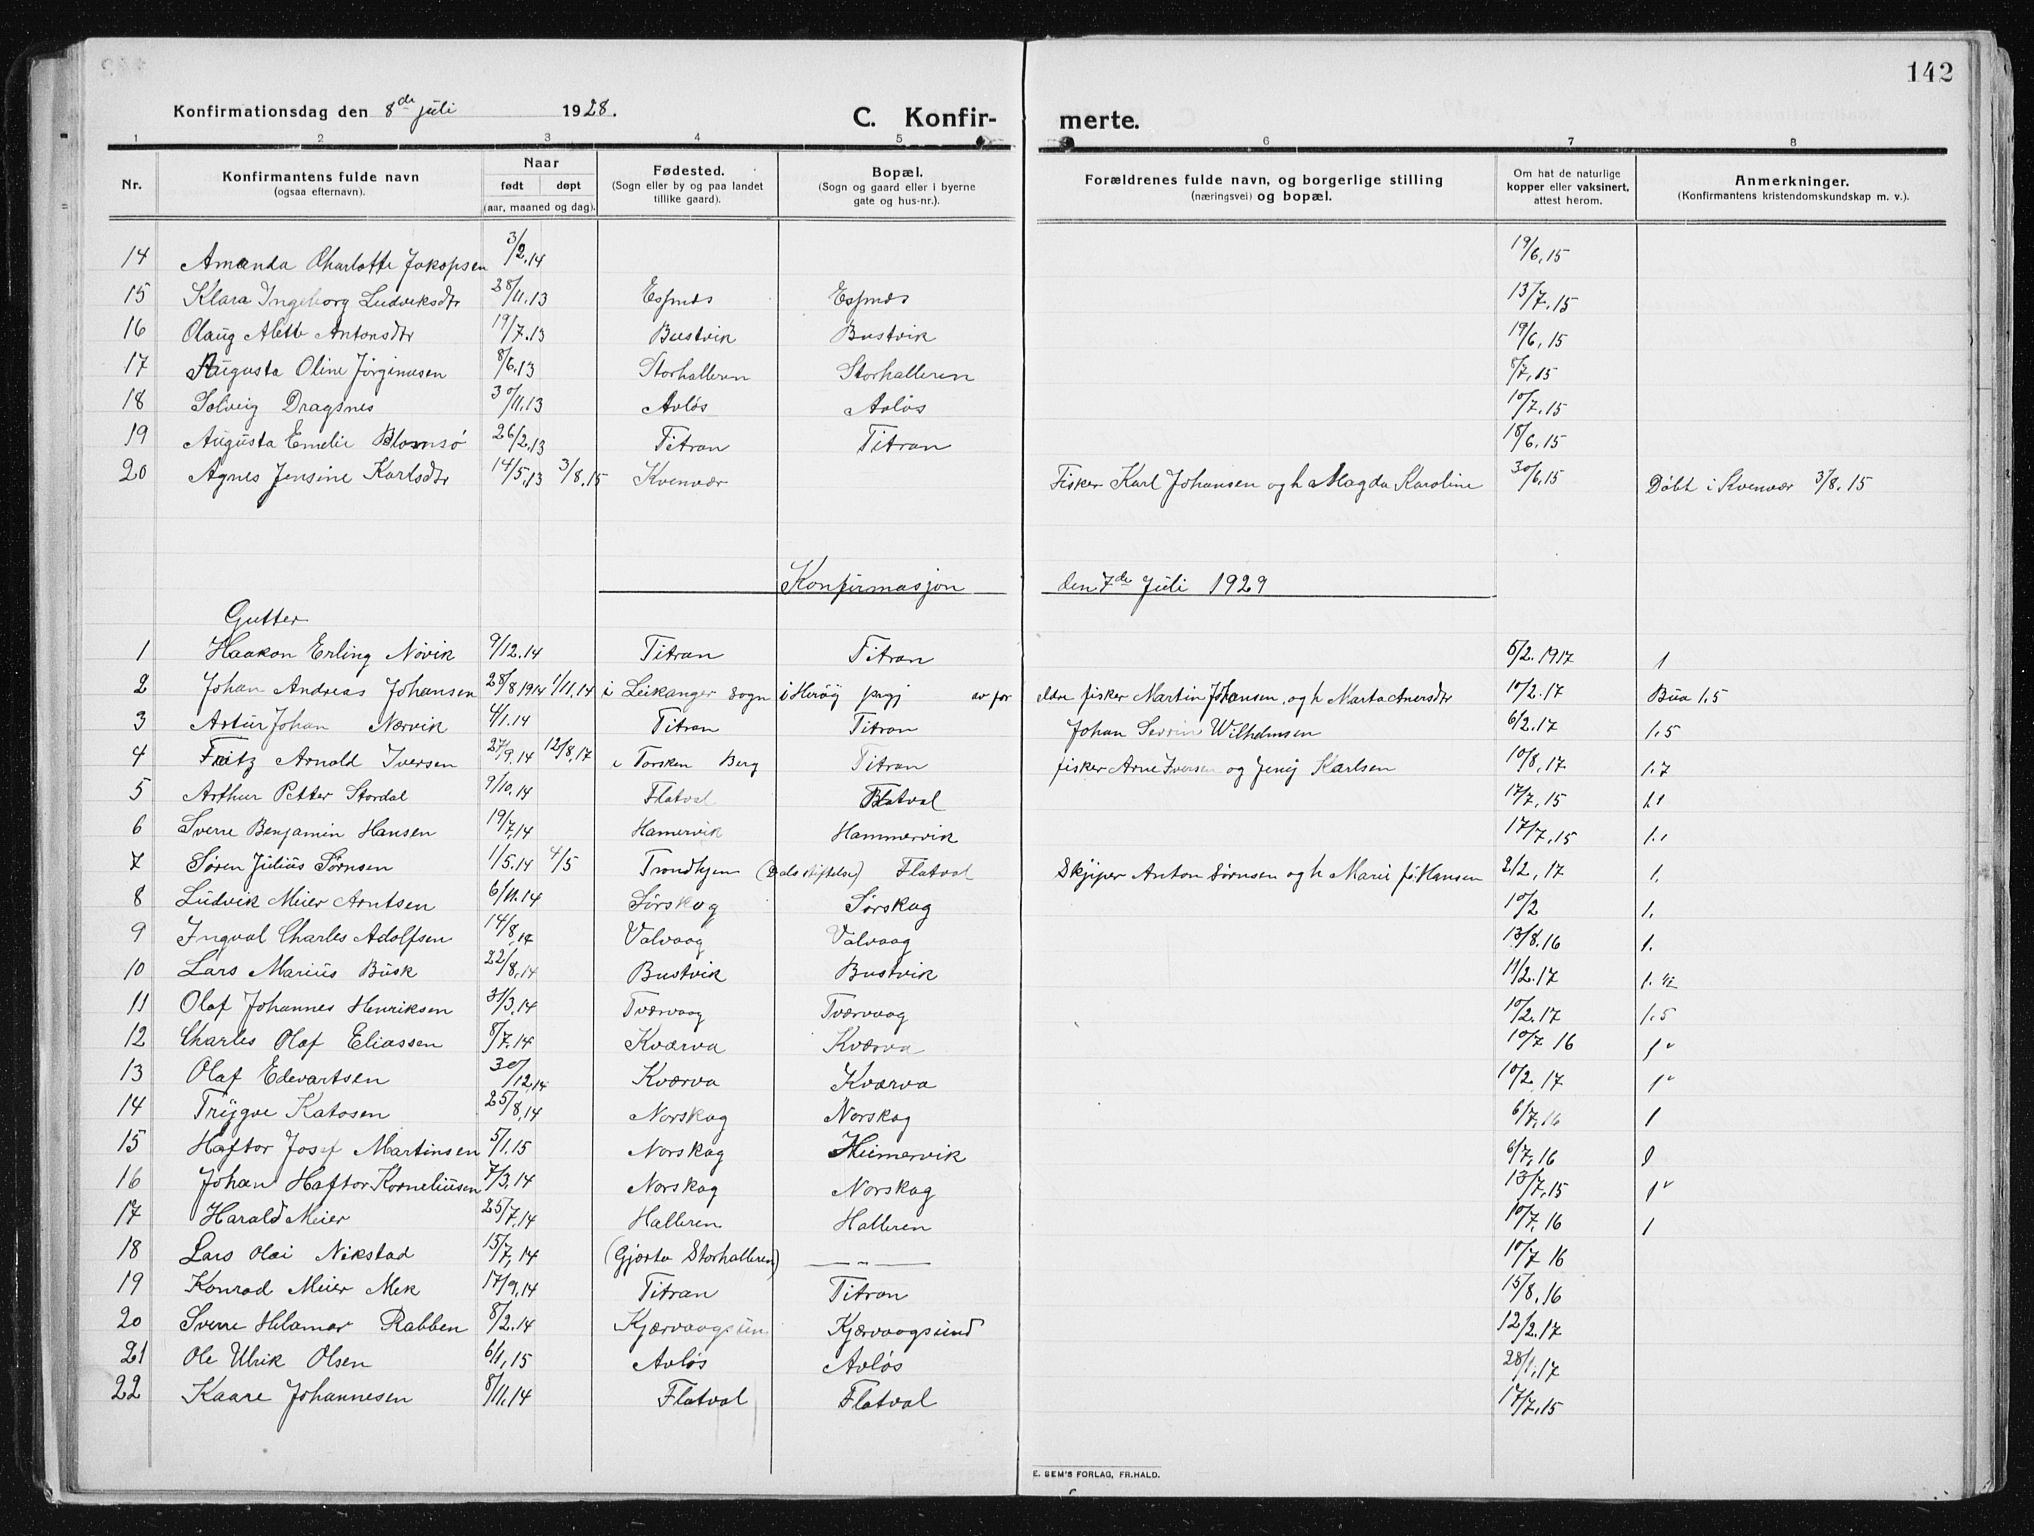 142
Konfirmationsdag den 8de juli 1928.
C. Konfir- merte.
1 2 3 4 5 6 7 8
Nr. Konfirmantens fulde navn (ogsaa efternavn). Naar født døpt (aar, maaned og dag). Fødested. (Sogn eller by og paa landet tillike gaard). Bopæl. (Sogn og gaard eller i byerne gate og hus-nr.). Forældrenes fulde navn, og borgerlige stilling (næringsvei) og bopæl. Om hat de naturlige kopper eller vaksinert, attest herom. Anmerkninger. (Konfirmantens kristendomskundskap m. v.).
14 Amanda Charlotte Jakopsen 3/2.14 19/6.15
15 Klara Ingeborg Ludviksdtr 28/11.13 Espnes Espnes 13/7.15
16 Olaug Alette Antonsdtr 19/7.13 Bustvik Bustvik 19/6.15
17 Augusta Oline Jørginusen 8/6.13 Storhalleren Storhalleren 8/7.15
18 Solveig Dragsnes 30/11.13 Avløs Avløs 10/7.15
19 Augusta Emelie Blomsø 26/2.13 Titran Titran 18/6.15
20 Agnes Jensine Karlsdtr 14/5.13 3/8.15 Kvenvær Fisker Karl Johansen og h Magda Karoline 30/6.15 Døbt i Kvenvær 3/8.15
Konfirmasjon den 7de Juli 1929
Gutter
1 Haakon Erling Nøvik 9/12.14 Titran Titran 5/2.1917 1
2 Johan Andreas Johansen 28/8 1914 1/11.14 i Leikanger sogn i Herøy prgj av for eldre fisker Martin Johansen og h Marta Anersdtr 10/2.17 Bua 1.5
3 Artur Johan Nærvik 4/1.14 Titran Titran Johan Sevrin Wilhelmsen 6/2.17 1.5
4 Fritz Arnold Iversen 27/9.14 12/8.17 i Torsken Berg Titran fisker Arne Iversen og Jenij Karlsen 10/8.17 1.7
5 Arthur Petter Stordal 9/10.14 Flatval Flatval 17/7.15 1.1
6 Sverre Benjamin Hansen 19/7.14 Hamervik Hammervik 17/7.15 1.1
7 Søren Julius Sørnsen 1/5.14 4/5 Trondhjem ( stiftelse) Flatval Skjiper Anton Sørnsen og h Marie f. Hansen 2/2.17 1.
8 Ludvik Meier Arntsen 6/11.14 Sørskag Sørskag 10/2 1.
9 Ingval Charles Adolfsen 14/8.14 Valvaag Valvaag 13/8.16 1.
10 Lars Marius Busk 22/8.14 Bustvik Bustvik 11/2.17 1.½
11 Olaf Johannes Henriksen 31/3.14 Tværvaag Tværvaag 10/2.17 1.5
12 Charles Olaf Eliassen 8/7.14 Kværva Kværva 10/7 16 1v
13 Olaf Edevartsen 30/12.14 Kværva Kværva 10/2.17 1v
14 Trygve Katosen 25/8.14 Norskag Norskag 6/7.16 1
15 Haftor Josef Martinsen 5/1.15 Norskag Heimervik 6/7.16 1
16 Johan Haftor Korneliusen 7/3.14 Norskag Norskag 13/7.15 1v
17 Harald Meier 25/7.14 Halleren Halleren 10/7.16 1
18 Lars Olai Nikstad 15/7.14 (Gjøsta Storhalleren) — „ — 10/7 16
19 Konrad Meier Mek 17/9.14 Titran Titran 15/8.16
20 Sverre Hilamar Rabben 8/2.14 Kjærvaagsun Kjærvaagsund 12/2.17
21 Ole Ulrik Olsen 6/1.15 Avløs Avløs 28/1.17
22 Kaare Johannesen 8/11.14 Flatval Flatval 17/7.15
E. SEM'S FORLAG, FR.HALD.